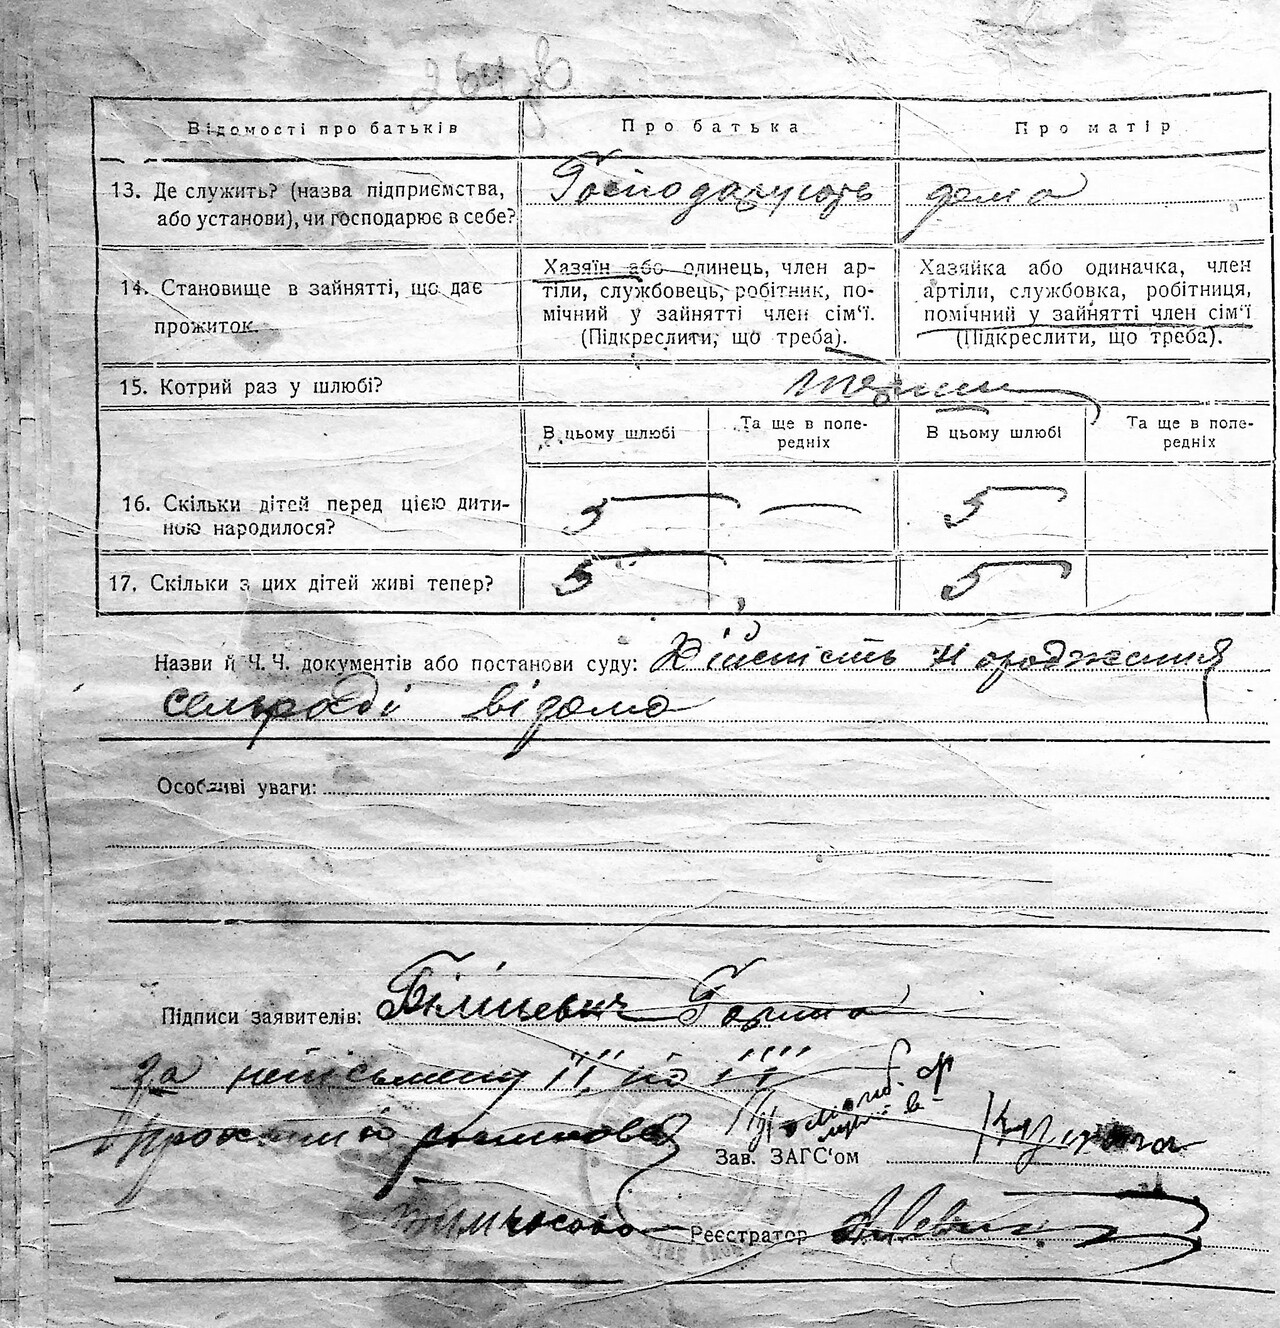 Відомості про батьків
Про батька
Про матір
13. Де служить? (назва підприємства,
або установи), чи господарює в себе?
Господарують дома
14. Становище в зайнятті, що дає
прожиток.
Хазяїн або одинець, член ар-
тіли, службовець, робітник, по-
мічний у зайнятті член сім'ї.
(Підкреслити, що треба).
Хазяйка або одиначка, член
артіли, службовка, робітниця,
помічний у зайнятті член сім'ї
(Підкреслити, що треба).
15. Котрий раз у шлюбі?
В цьому шлюбі
Та ще в попе-
редніх
В цьому шлюбі
Та ще в попе-
редніх
16. Скільки дітей перед цією дити-
ною народилося?
5 — 5
17. Скільки з цих дітей живі тепер?
5 — 5
Назви й Ч. Ч. документів або постанови суду: Дійсність народження
сельраді відомо
Особливі уваги:
Підписи заявителів:
за неписьмену
Зав. ЗАГС'ом
Реєстратор